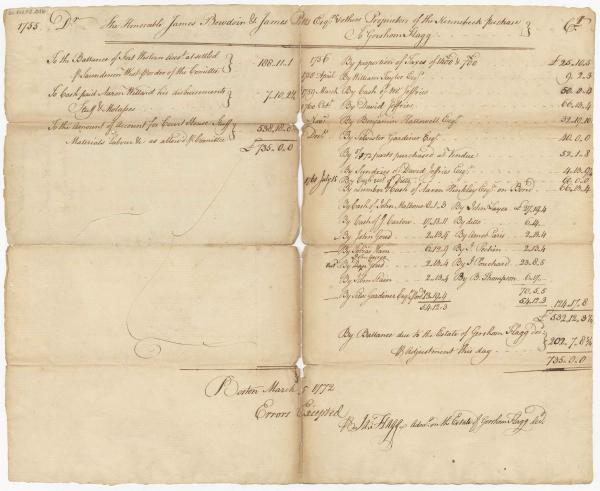 1755 Dr The Honorable James Bowdoin & James Pitts Esqrs & others Proprietors of the Kennebeck purchase Cr
To Gershom Flagg
To the Ballance of Fort Western Accot as settled
 108.11.1
To Cash paid Aaron Willard his disbursements 7.10.2¼
Staff & Molasses
To the amount of Account for Court House Stuff 
Materials Labour &c as allow'd Committee
£735.0.0
1756 By proportion of Taxes of £25.10.5
1758 April By William Taylor Esqr 9.2.3
1759 March By Cash of Mr Jeffries 50.0.4
1760 Octr By David Jeffries 66.13.4
Novr By Benjamin Hallowell Esqr 32.10.10
Decr By Silvester Gardiner Esqr 40.0.0
By parts purchased at Vendue 52.1.8
By Sundries of David Jeffries Esqr
1761 July 15 By Cash 60.0.0
By Lumber & Cash of Aaron Hinkley Esqr on Bond 66.13.4
By Cash of John 0.1.3 By John £27.19.4
By Cash of J Barlow 17.13.11 By ditto 6.4.
By John 2.13.4 By Amos Paris 2.13.4
By Tobias Ham 6.12.9 By J. 2.13.4
By 2.13.4 By J Pouchard 23.8.5
By John 2.13.4 By B. Thompson 6.19.
By Silv Gardiner Esqr 18.19.4 70.5.5
54.12.3 54.12.3 124.17.8
£532.12.3¼
By Ballance due to the Estate of Gershom Flagg Decd 202.7.8¾
Adjustment this day
735.0.0
Boston March 5 1772
Errors Excepted
Flagg Admr on the Estate of Gershom Flagg decd